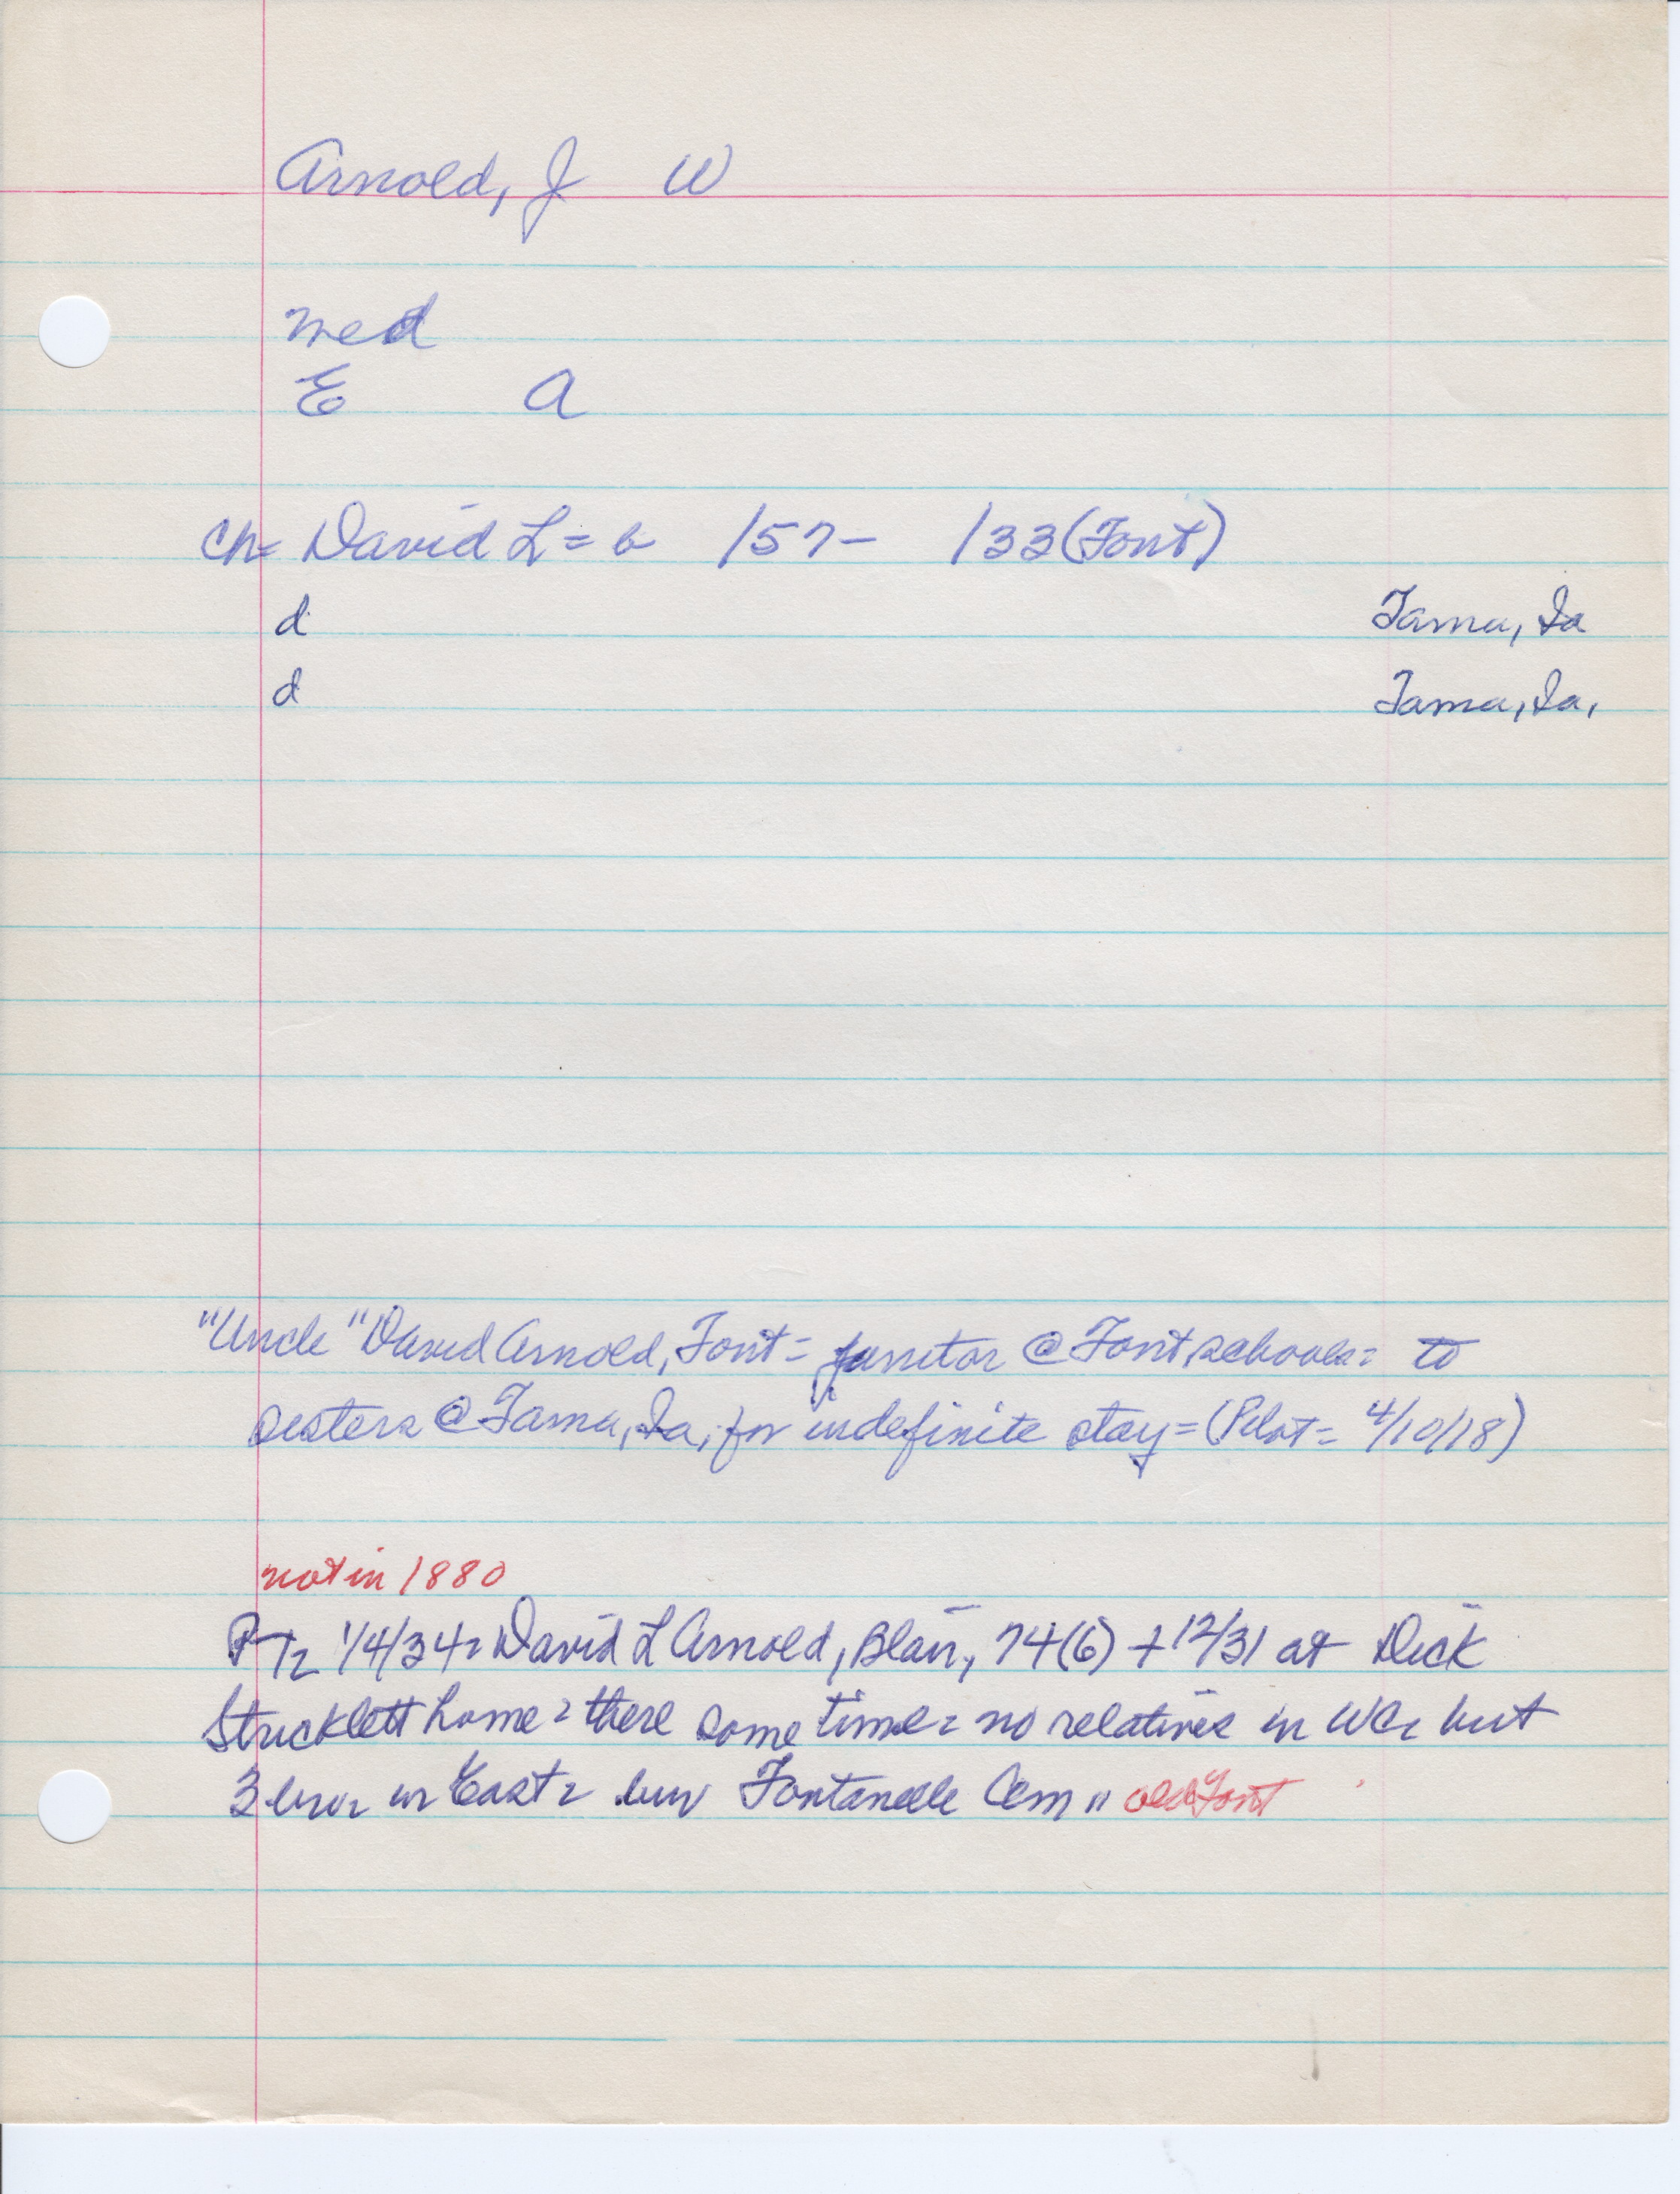 Arnold, J W
med
E A
Ch= David L = b /57- /33 (Font)
d Tama, Ia
d Tama, Ia,
"Uncle" David Arnold, Font = janitor @ Font schools = to
sisters @ Tama, Ia, for indefinite stay = (Pilot = 4/10/18)
not in 1880
1/4/34 = David L Arnold, Blair, 74(6) + 12/31 at Dick
Stricklett home = there some time = no relatives in WC = but
3 bros in East = bur Fontanelle Cem " old Font